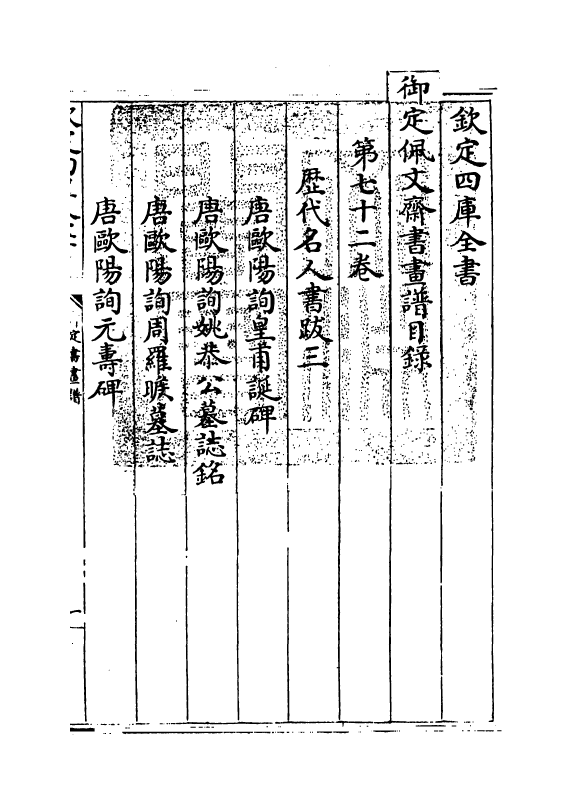 欽定四庫全書
御定佩文齋書畫譜目錄
第七十二卷
歴代名人書跋三
唐歐陽詢皇甫誕碑
唐歐陽詢姚恭公墓誌銘
唐歐陽詢周羅睺墓誌
唐歐陽詢元壽碑